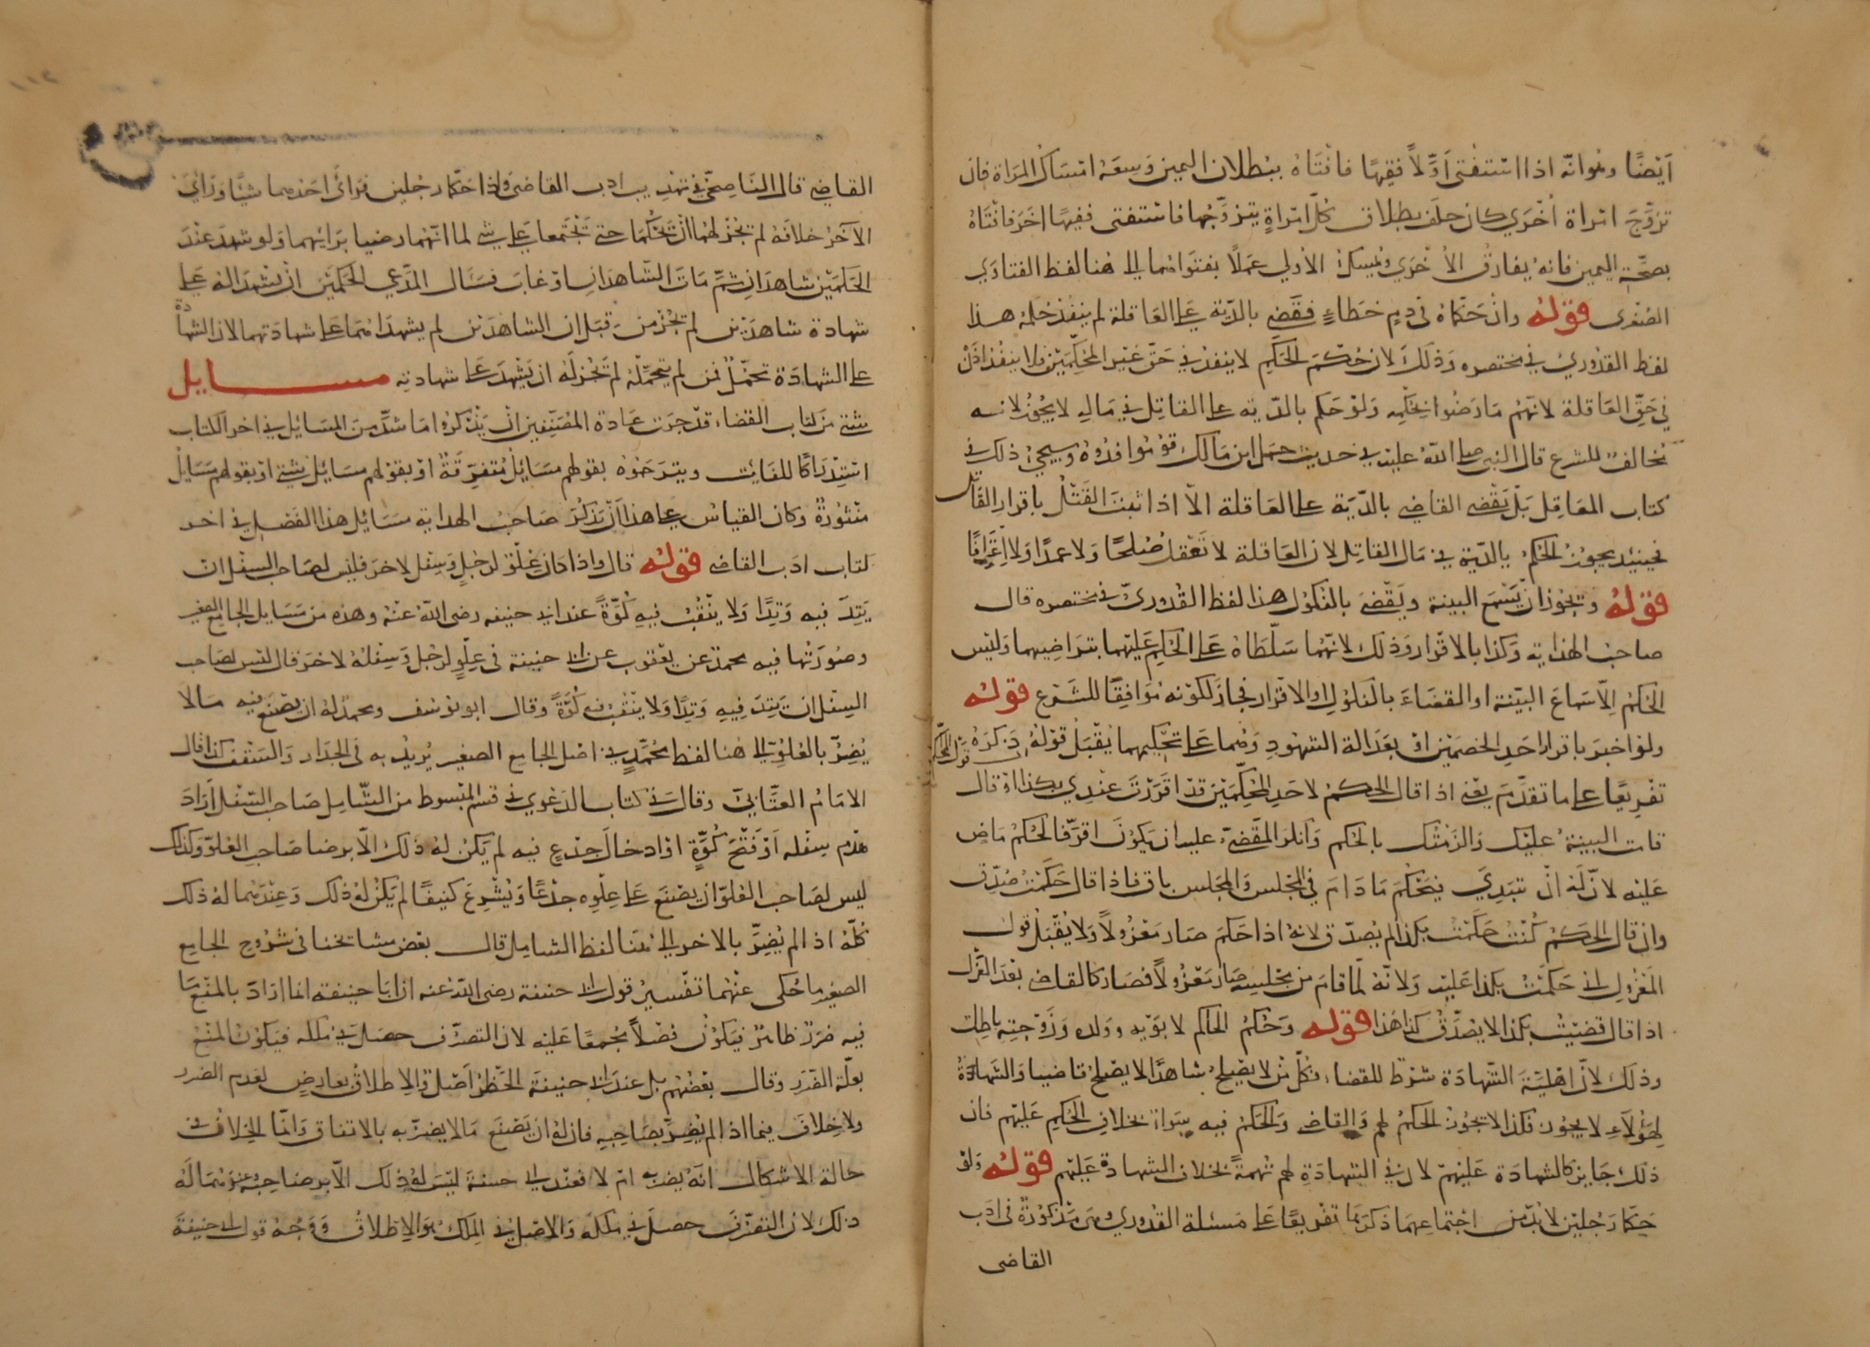 أيضًا وهو انه اذا استفتى أوّلاً فقيهًا فافتاه ببطلان اليمين وسعه امساك المراة فان
تزوّج امراة أخرى كان حلف بطلاق كل امراةٍ يتزوّجها فاستفتى فقيهًا اخر فافتاه
بصحّة اليمين فانه يفارق الأخرى ويمسك الأولى عملاً بفتواهما الى هنا لفظ الفتاوى
الصغرى قوله وان حكّماه في دم خطاءٍ فقضى بالدية على العاقلة لم ينفذ حكمه هذا
لفظ القدوري في مختصره وذلك لان حكم الحكم لا ينفذ في حق غير المحكمين فلا ينفذ اذن
في حق العاقلة لانهم ما رضوا بحكمه ولو حكم بالدية على القاتل في ماله لا يجوز لانه
مخالف للشرع قال النبي صلى الله عليه في حديث حمل ابن مالك قوموا فدوه وسيجيء ذلك في
كتاب المعاقل بل يقضى القاضي بالدّية على العاقلة الاّ اذا ثبت القتل باقرار القاتل
فحينئذ يجوز الحكم بالدية في مال القاتل لان العاقلة لا تعقل صلحًا ولا عمدًا ولا اعترافًا
قوله ويجوز ان يسمع البينة ويقضى بالنكول هذا لفظ القدوريّ في مختصره قال
صاحب الهداية وكذا بالاقرار وذلك لانهما سلّطاه على الحكم عليهما بتراضيهما وليس
الحكم الاّ سماع البيّنة او القضاء بالنكول او الاقرار فجاز لكونه موافقًا للشرع قوله
ولو اخبر باقرار احد الخصمين او بعدالة الشهود وهما على تحكيمهما يقبل قوله ذكره
تفريعًا على ما تقدّم يعني اذا قال الحكم لاحد المحكّمين قد اقررت عندي بكذا او قال
قامت البينة عليك والزمتك بالحكم وانكر المقضيّ عليه ان يكون اقرّ فالحكم ماضٍ
عليه لانّ له ان يبتدي فيحكم ما دام في المجلس والمجلس باق فاذا قال حكمت صدّق
وان قال الحكم كنت حكمت بكذا لم يصدّق لانه اذا حكم صار معزولاً ولا يقبل قول
المعزول اني حكمت بكذا عليه ولانه لما قام من مجلسه صار معزولاً فصار كالقاضي بعد العزل
اذا قال قضيت بكذا لا يصدّق كذا هذا قوله وحكم الحاكم لابويه وولده وزوجته باطل
وذلك لان اهلية الشهادة شرط للقضاء فكلّ من لا يصلح شاهدًا لا يصلح قاضيا والشهادة
لهؤلاء لا يجوز فكذا لا يجوز الحكم لهم والقاضي والحكم فيه سواء بخلاف الحكم عليهم فان
ذلك جايز كالشهادة عليهم لان في الشهادة لهم تهمةً بخلاف الشهادة عليهم قوله ولو
حكّما رجلين لا بد من اجتماعهما ذكرها تفريعًا على مسئلة القدوري وهي مذكورة في ادب
القاضى
القاضي قال الناصحيّ في تهذيب ادب القاضي واذا حكّما رجلين فرأى احدهما شيًّا ورأى
الآخر خلافه لم يجز لهما ان يحكما حتى يجتمعا على شيء لما انهما رضيا برايهما ولو شهد عند
الحكمين شاهدان ثمّ مات الشاهدان او غاب فسال المدّعي الحكمين ان يشهدا له على
شهادة شاهدين لم يجز من قبل ان الشاهدين لم يشهداهما على شهادتهما لان الشهادة
على الشهادة تحمّل فمن لم يتحمّله لم تجز له ان يشهد على شهادته مسايل
شتى من كتاب القضاء قد جرت عادة المصنّفين ان يذكروا ما شذّ من المسائل في اخر الكتاب
استدراكًا للفائت ويترجموه بقولهم مسائل متفرّقة او بقولهم مسائل شتى او بقولهم مسايل
منثورة وكان القياس على هذا ان يذكر صاحب الهداية مسائل هذا الفصل في اخر
كتاب ادب القاضى قوله قال واذا كان علو لرجلٍ وسفل لاخر فليس لصاحب السفل ان
يتد فيه وتدًا ولا ينقب فيه كوّةً عند ابي حنيفه رضى الله عنه وهذه من مسايل الجامع الصغير
وصورتها فيه محمد عن يعقوب عن ابي حنيفة في علوٍ لرجل وسفله لاخر قال ليس لصاحب
السفل ان يتد فيه وتدًا ولا ينقب فيه كوّةً وقال ابو يوسف ومحمد له ان يصنع فيه ما لا
يضرّ بالعلو الى هنا لفظ محمّدٍ في اصل الجامع الصغير يريد به في الجدار والسقف كذا قال
الامام العتّابيّ وقال في كتاب الدعوي في قسم المبسوط من الشّامل صاحب السّفل اراد
هدم سفله او فتح كوّةٍ او ادخال جذعٍ فيه لم يكن له ذلك الاّ برضا صاحب العلوّ وكذلك
ليس لصاحب العلوّ ان يضع على علوه جذعًا ويشرع كنيفًا لم يكن له ذلك وعندهما له ذلك
كلّه اذا لم يضرّ بالاخر الى هنا لفظ الشامل قال بعض مشائخنا في شروح الجامع
الصغير ما حكى عنهما تفسير قول ابي حنيفة رضى الله عنه ان ابا حنيفة انما اراد بالمنع ما
فيه ضررٌ ظاهرٌ فيكون فضلاً مجمعًا عليه لان التصرّف حصل في ملكه فيكون المنع
بعلّة الضرر وقال بعضهم بل عند ابي حنيفة الحظر اصل والاطلاق بعارض لعدم الضرر
ولا خلاف فيما اذا لم يضرّ بصاحبه فان له ان يصنع ما لا يضرّ به بالاتفاق وانّما الخلاف في
حالة الاشكال انه يضرّ به ام لا فعند ابي حنيفة ليس له ذلك الاّ برضا صاحبه وعندهما له
ذلك لان التصرّف حصل في ملكه والاصل في الملك هو الاطلاق ووجه قول ابي حنيفة